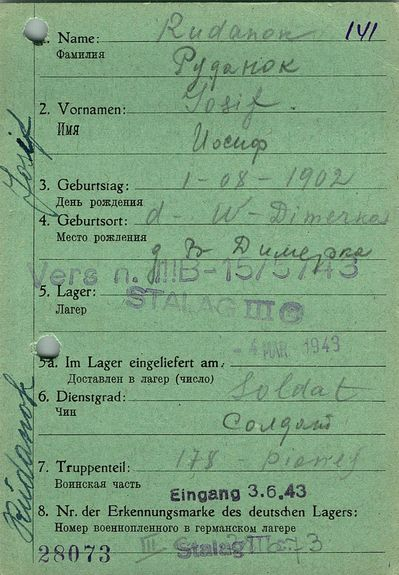 1. Name: Rudanok 141
Фамилия Руданок
2. Vornamen: Iosif.
Имя Иосиф
3. Geburtstag: 1-08-1902
День рождения
4. Geburtsort: d- W-Dimerka
Место рождения д. В-Димерка
Vers n. IIIB-15/5/43
5. Lager: STALAG III C
Лагер
- 4. MÄR. 1943
5a. Im Lager eingeliefert am:
Доставлен в лагер (число)
6. Dienstgrad: Soldat
Чин Солдат
7. Truppenteil: 178 - pioney
Воинская часть
Eingang 3.6.43
8. Nr. der Erkennungsmarke des deutschen Lagers:
Номер военнопленного в германском лагере
28073 Stalag III
Josef
Rudanok